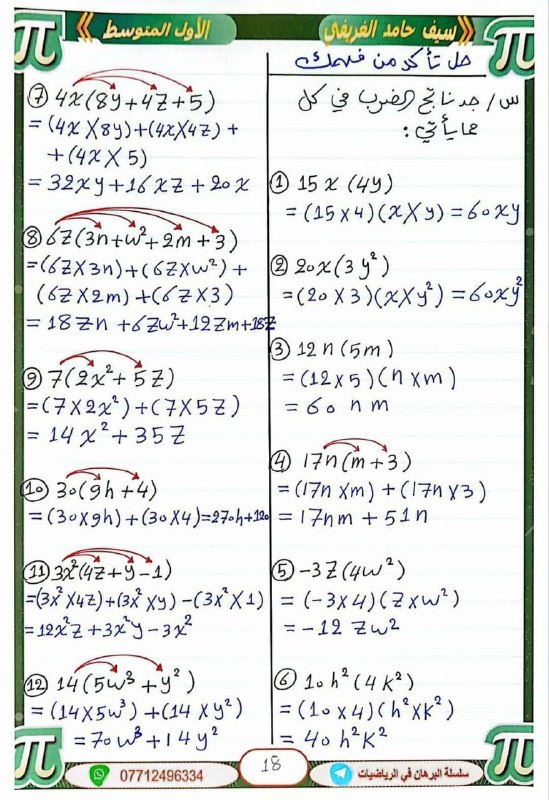 سيف حامد الغريفي
الأول المتوسط
حل تأكد من فهمك
س/ جد ناتج الضرب في كل
مما يأتي :
① 15x (4y)
= (15×4)(x×y) = 60xy
② 20x(3y²)
= (20×3)(x×y²) = 60xy²
③ 12n(5m)
= (12×5)(n×m)
= 60 nm
④ 17n(m+3)
= (17n×m) + (17n×3)
= 17nm + 51n
⑤ -3z(4w²)
= (-3×4)(z×w²)
= -12 zw²
⑥ 10h²(4k²)
= (10×4)(h²×k²)
= 40h²k²
⑦ 4x(8y+4z+5)
= (4x×8y)+(4x×4z)+
+(4x×5)
= 32xy+16xz+20x
⑧ 6z(3n+w²+2m+3)
=(6z×3n)+(6z×w²)+
(6z×2m)+(6z×3)
= 18zn+6zw²+12zm+18z
⑨ 7(2x²+5z)
=(7×2x²)+(7×5z)
= 14x²+35z
⑩ 30(9h+4)
=(30×9h)+(30×4)=270h+120
⑪ 3x²(4z+y-1)
=(3x²×4z)+(3x²×y)-(3x²×1)
=12x²z+3x²y-3x²
⑫ 14(5w³+y²)
= (14×5w³)+(14×y²)
= 70w³+14y²
07712496334
18
سلسلة البرهان في الرياضيات